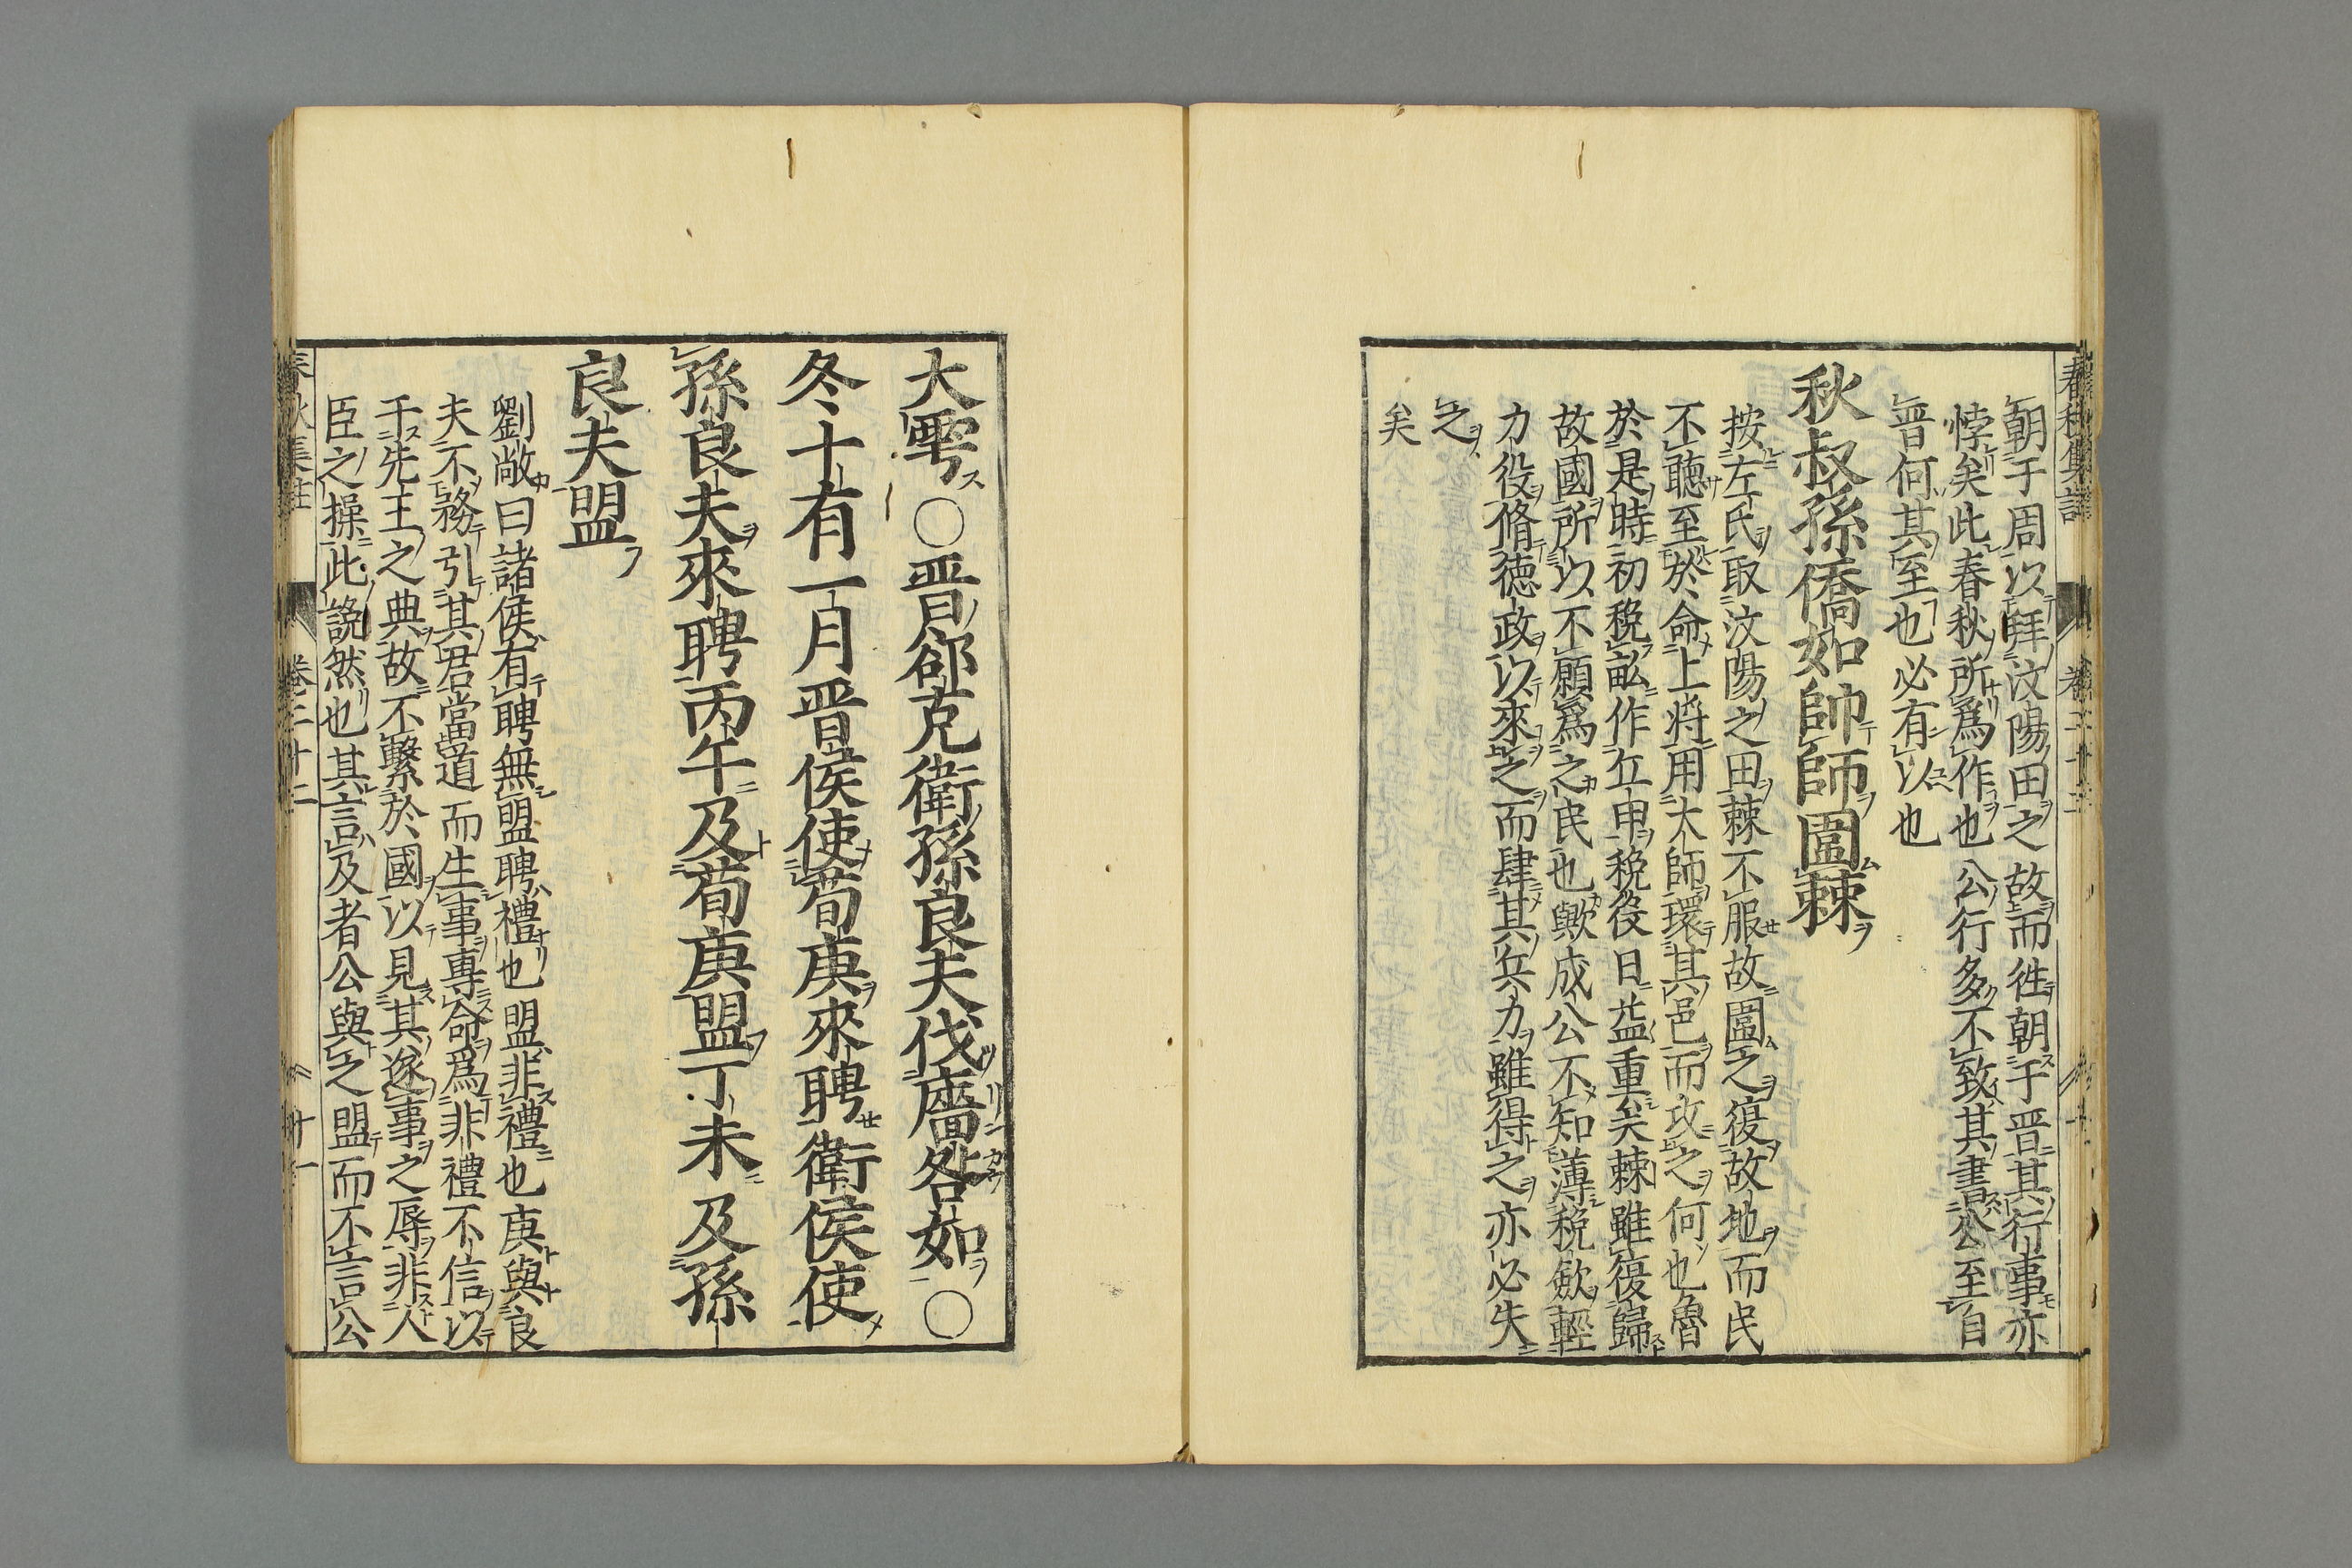 朝于周以拜汶陽田之故而徃朝于晋其行事亦
悖矣此春秋所爲作也公行多不致其書公至自
晋何其至也必有以也
秋叔孫僑如帥師圍棘
按左氏取汶陽之田棘不服故圍之復故地而民
不聽至於命上將用大師環其邑而攻之何也魯
於是時初税畝作丘甲税役日益重矣棘雖復歸
故國所以不願爲之民也歟成公不知薄税歛輕
力役脩德政以來之而肆其兵力雖得之亦必失
之
矣
大雩〇晋郤克衛孫良夫伐廧咎如〇
冬十有一月晋侯使荀庚來聘衛侯使
孫良夫來聘丙午及荀庚盟丁未及孫
良夫盟
劉敞曰諸侯有聘無盟聘禮也盟非禮也庚與良
夫不務引其君當道而生事專命爲非禮不信以
干先王之典故不繫於國以見其遂事之辱非人
臣之操此說然也其言及者公與之盟而不言公
春秋集註 卷二十二 十一